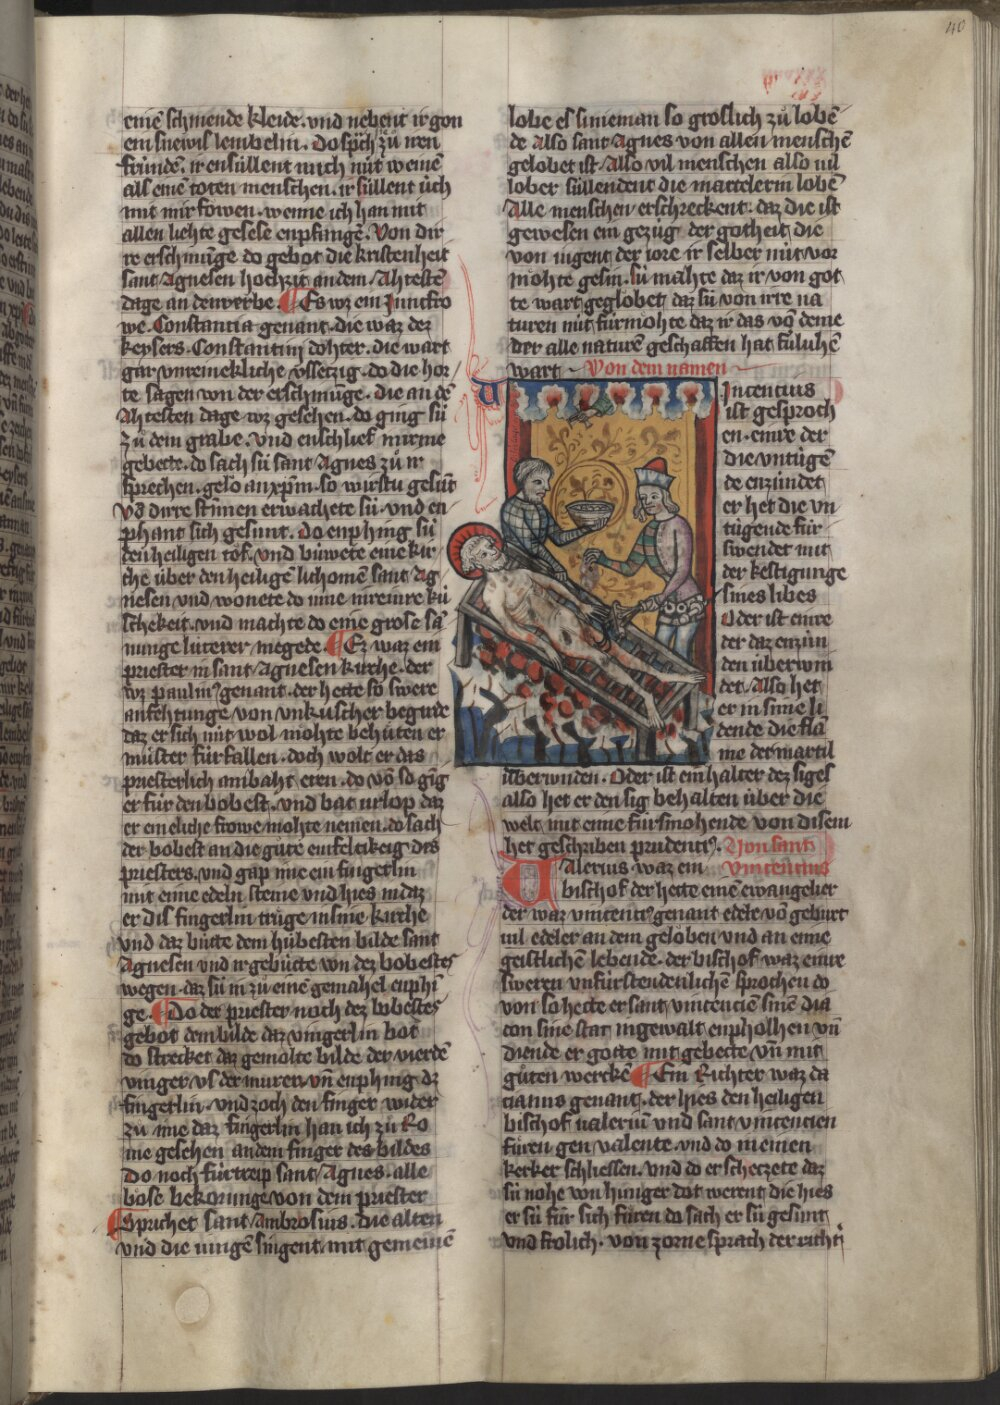 40
einē schinende kleide. vnd nebent ir gon
ein snewis lembelin. Do sp̄ch zů iren
fründē. ir ensüllent mich nüt weinē
als einē toten menschen. ir süllent üch
mit mir fröwen. wenne ich han mit
allen liehte gesese enpfangē. Von dir
re erschinūge do gebot die kristenheit
sant Agnesen hochzit an dem Ahtesten
dage an dem
¶ Es wz ein Juncfro
we. Constantia genant. die waz dez
keysers. Constantini dohter. die wart
gar vnremekliche vssetzig. do die hor
te sagen von der erschinūge. die an dē
Ahtesten dage wz geschehen. do ging sü
zů dem grabe. vnd entschlief mit irme
gebette. do sach sü sant Agnes zů ir
sprechen. gelo an xpm̄. so wirstu gesūt
Vō dirre stīmen erwachete sü. vnd en
phant sich gesunt. Do enphing sü
den heiligen tof. vnd büwete eine kir
che über den heiligē lichomen sant Ag
nesen vnd wonete do inne in reinre kü
schekeit. vnd machte do eine grose sā
nunge luterer megede. ¶ Ez waz ein
priester in sant Agnesen kirche. der
wz paulin9 genant. der hette so swere
anfehtunge von vnküscher begirde
daz er sich nüt wol mohte behüten er
müster für fallen. doch wolt er das
priesterlich ambaht eren. do vō so gīg
er für den bobest. vnd bat urlop daz
er ein eliche frowe mohte nemen. do sach
der bobest an die güte einfeltikeit des
priesters. vnd gap ime ein fingerlin
mit eime edeln steine vnd hies in daz
er dis fingerlin trüge in sine kirche
vnd daz bütte dem hübesten bilde sant
Agnesen vnd ir gebütte von dez bobestes
wegen. daz sü in zů eine gemahel enphi
ge. ¶ Do der priester noch dez bobestes
gebot dem bilde daz vingerlin bot
do strecket daz gemolte bilde der vierdē
vinger vs der muren. vn̄ enphing dz
fingerlin. vnd zoch den finger wider
zů ime daz fingerlin han ich zů Ro
me gesehen an dem finger des bildes
Do noch für treip sant Agnes. alle
bose bekorunge von dem priester
¶ Sprichet sant Ambrosius. die alten
vnd die iungē singent mit gemeinē
lobe es si nieman so groslich zů lobē
de also sant Agnes von allen menschē
gelobet ist. Also vil menschen also vil
lober süllendent die martelerin lobē
Alle menschen erschreckent. daz die ist
gewesen ein gezüg der gotheit die
von iugent der iore ir selber nüt vor
mohte gesin. sü mahte daz ir von got
te wart geglobet daz sü von irre na
turen nüt fürmohte daz ir das vō deme
der alle naturē geschaffen hat füluhē
wart Von dem namen
Uincencius
ist gesproch
en. einre der
die vntügē
de enzündet
er het die vn
tügende für
swendet mit
der kestigunge
sines libes
Oder ist einre
der daz enzün
den überwin
det. Also het
er in sime li
dende die fla
me der martil
überwnden. Oder ist ein halter dez siges
also het er den sig behalten über die
welt mit eime fürsmohende von disem
het geschriben prudenti9. Von sant
Ualerius waz ein Vincentius
bischof der hette einē ewangelier
der waz vincenti9 genant edele vō geburt
vil edeler an dem geloben vnd an eime
geistlichē lebende. der bischof waz einre
sweren vnfürstendenlichē sprochen do
von so hette er sant vincencien sinē dia
con sine stat in gewalt enpholhen vn̄
diende er gotte mit gebette vn̄ mit
gůten werckē ¶ Ein Richter waz da
cianus genant. der hies den heiligen
bischof valeriū vnd sant vincencien
füren gen valente. vnd do in einen
kerker schliessen. vnd do er schetzete daz
sü nohe von hunger dot werent die hies
er sü für sich füren do sach er sü gesunt
vnd frolich. von zorne sprach der richt